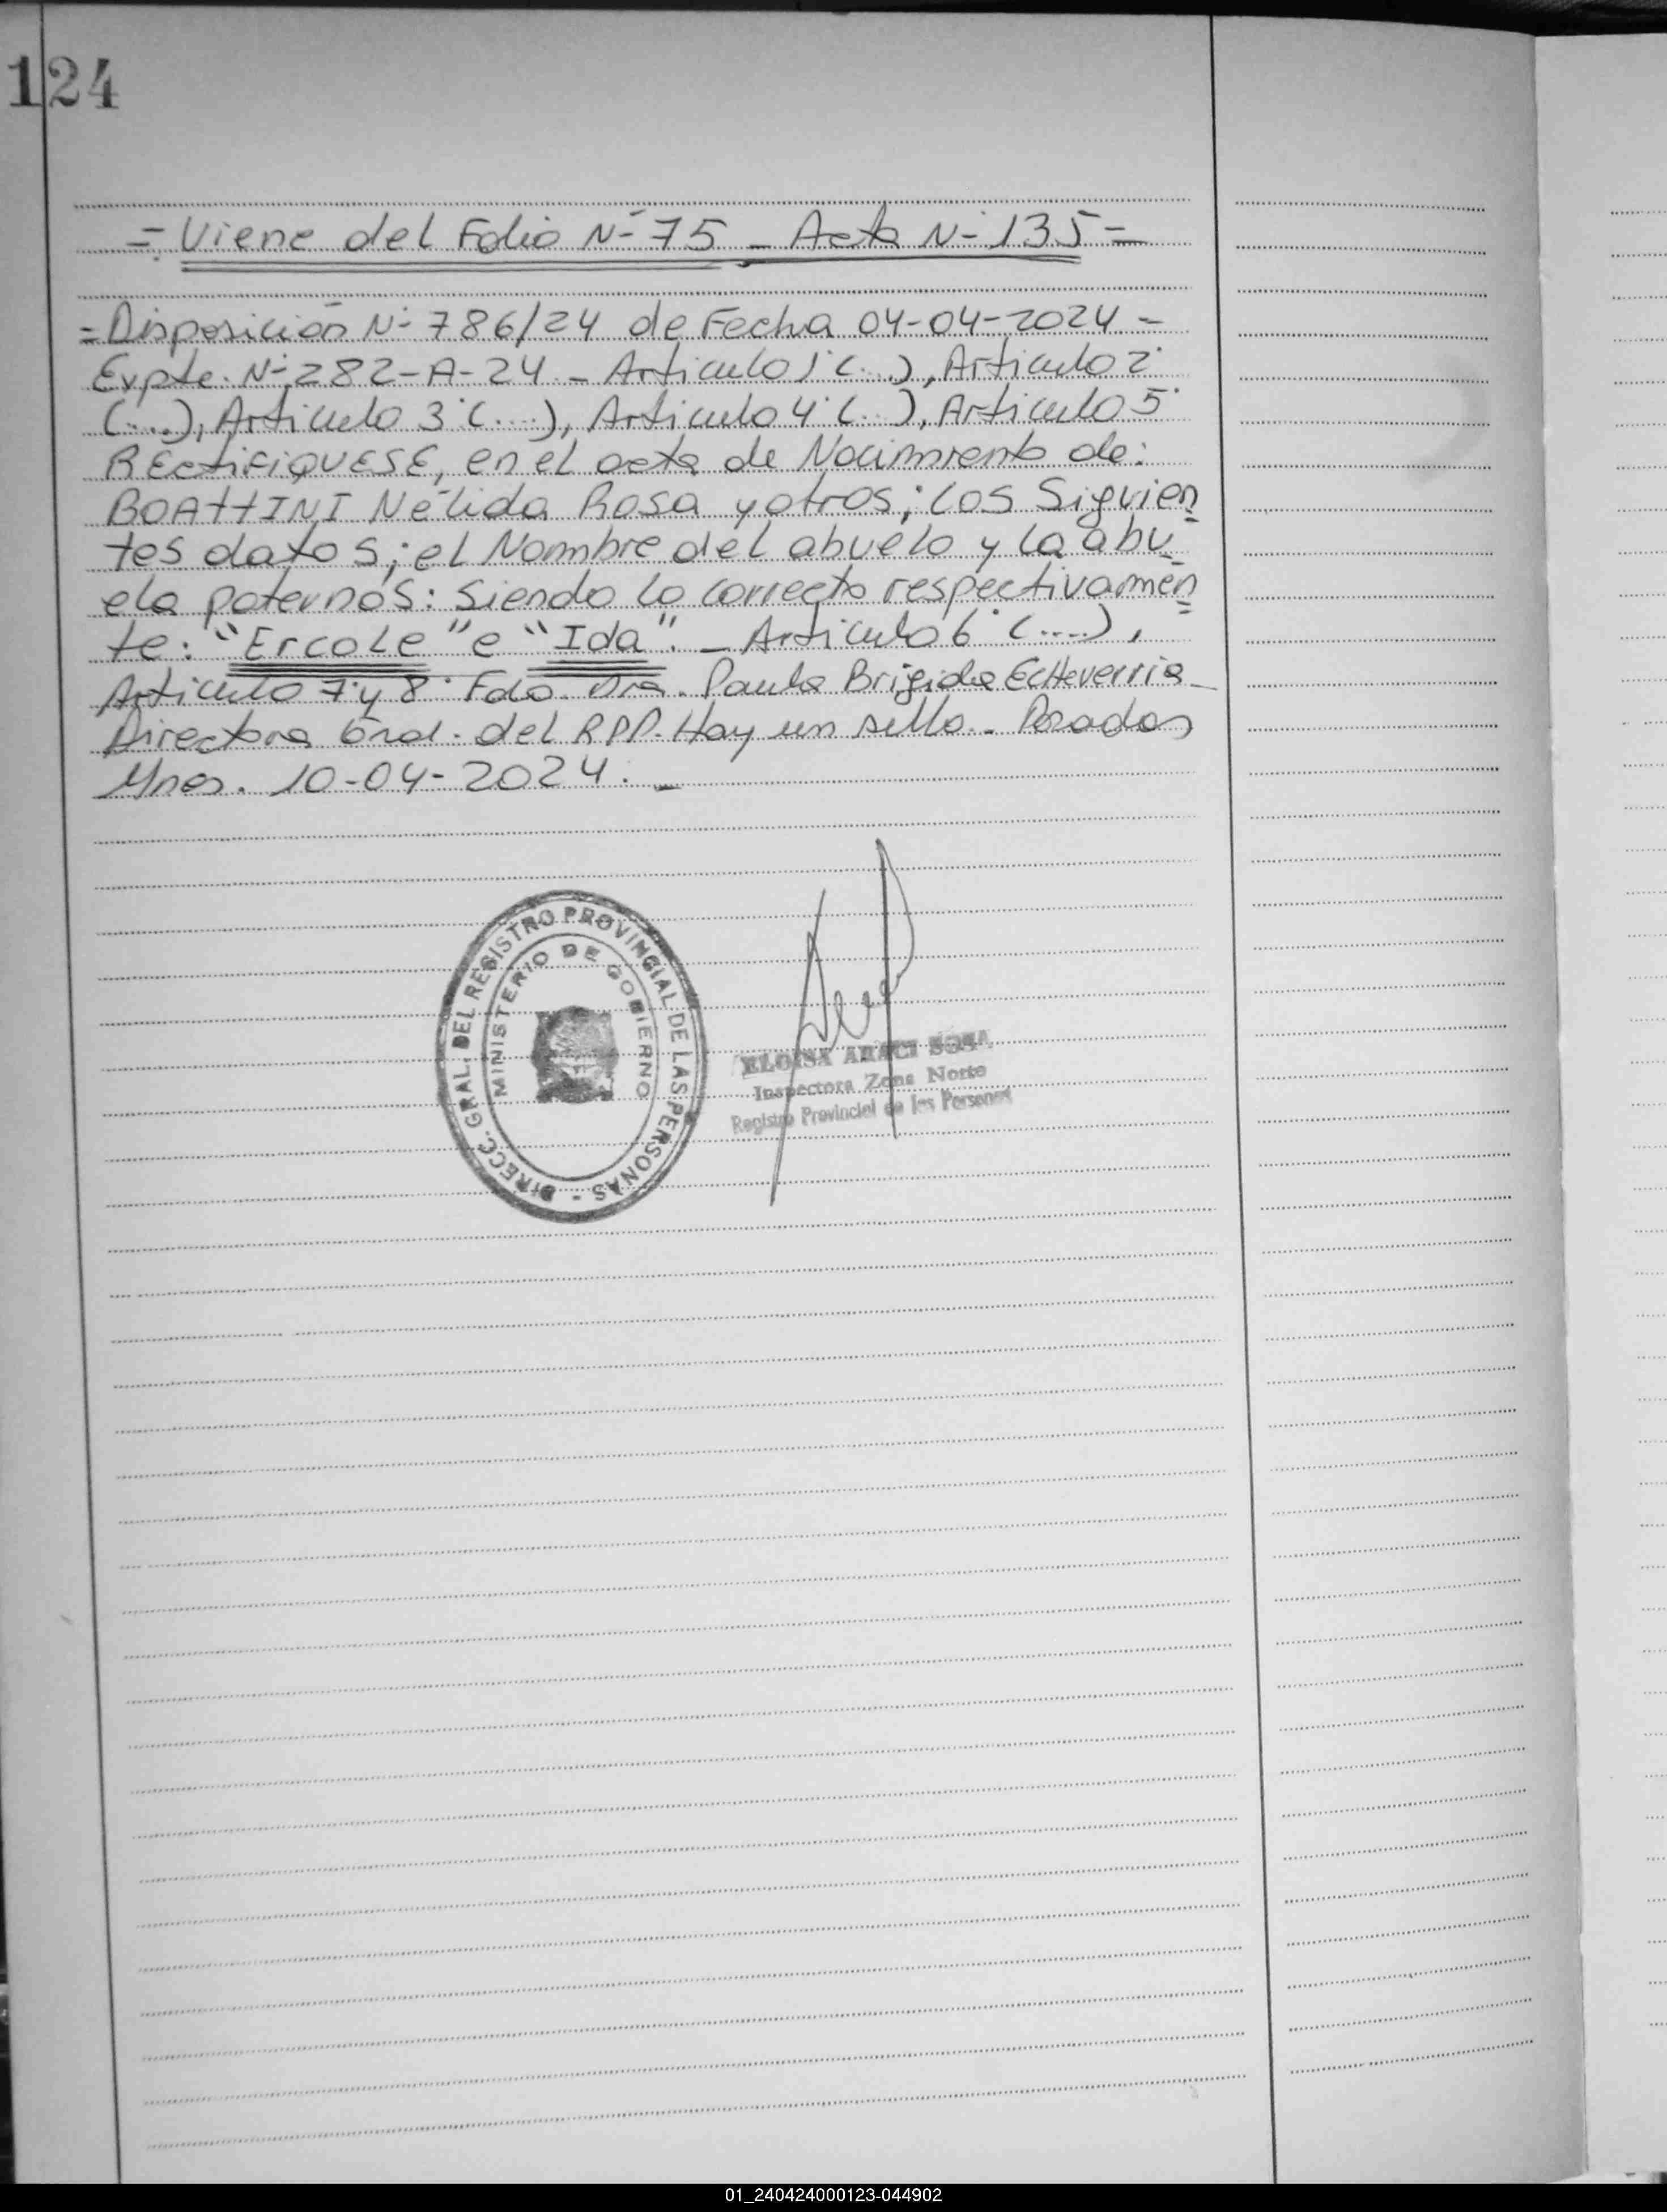 124
= Viene del Folio N° 75 _ Acta N° 135 =
= Disposición N° 786/24 de Fecha 04-04-2024 -
Expte. N° 282-A-24 _ Articulo 1° (...), Articulo 2°
(...), Articulo 3° (....), Articulo 4° (...), Articulo 5°
RECtiFiQUESE, en el acta de Nacimiento de:
BOAttINI Nélida Rosa y otros; Los Siguien
tes datos; el Nombre del abuelo y la abu
ela paternos: Siendo lo correcto respectivamen
te: "Ercole" e "Ida". _ Articulo 6° (....),
Articulo 7° y 8° Fdo. Dra. Paula Brigida Echeverria _
Directora Gral. del RPP. Hay un sello._ Posadas
Mnes. 10-04-2024. _
DIRECC. GRAL. DEL REGISTRO PROVINCIAL DE LAS PERSONAS -
MINISTERIO DE GOBIERNO
ELOISA ARACI SOSA
Inspectora Zona Norte
Registro Provincial de las Personas
01_240424000123-044902